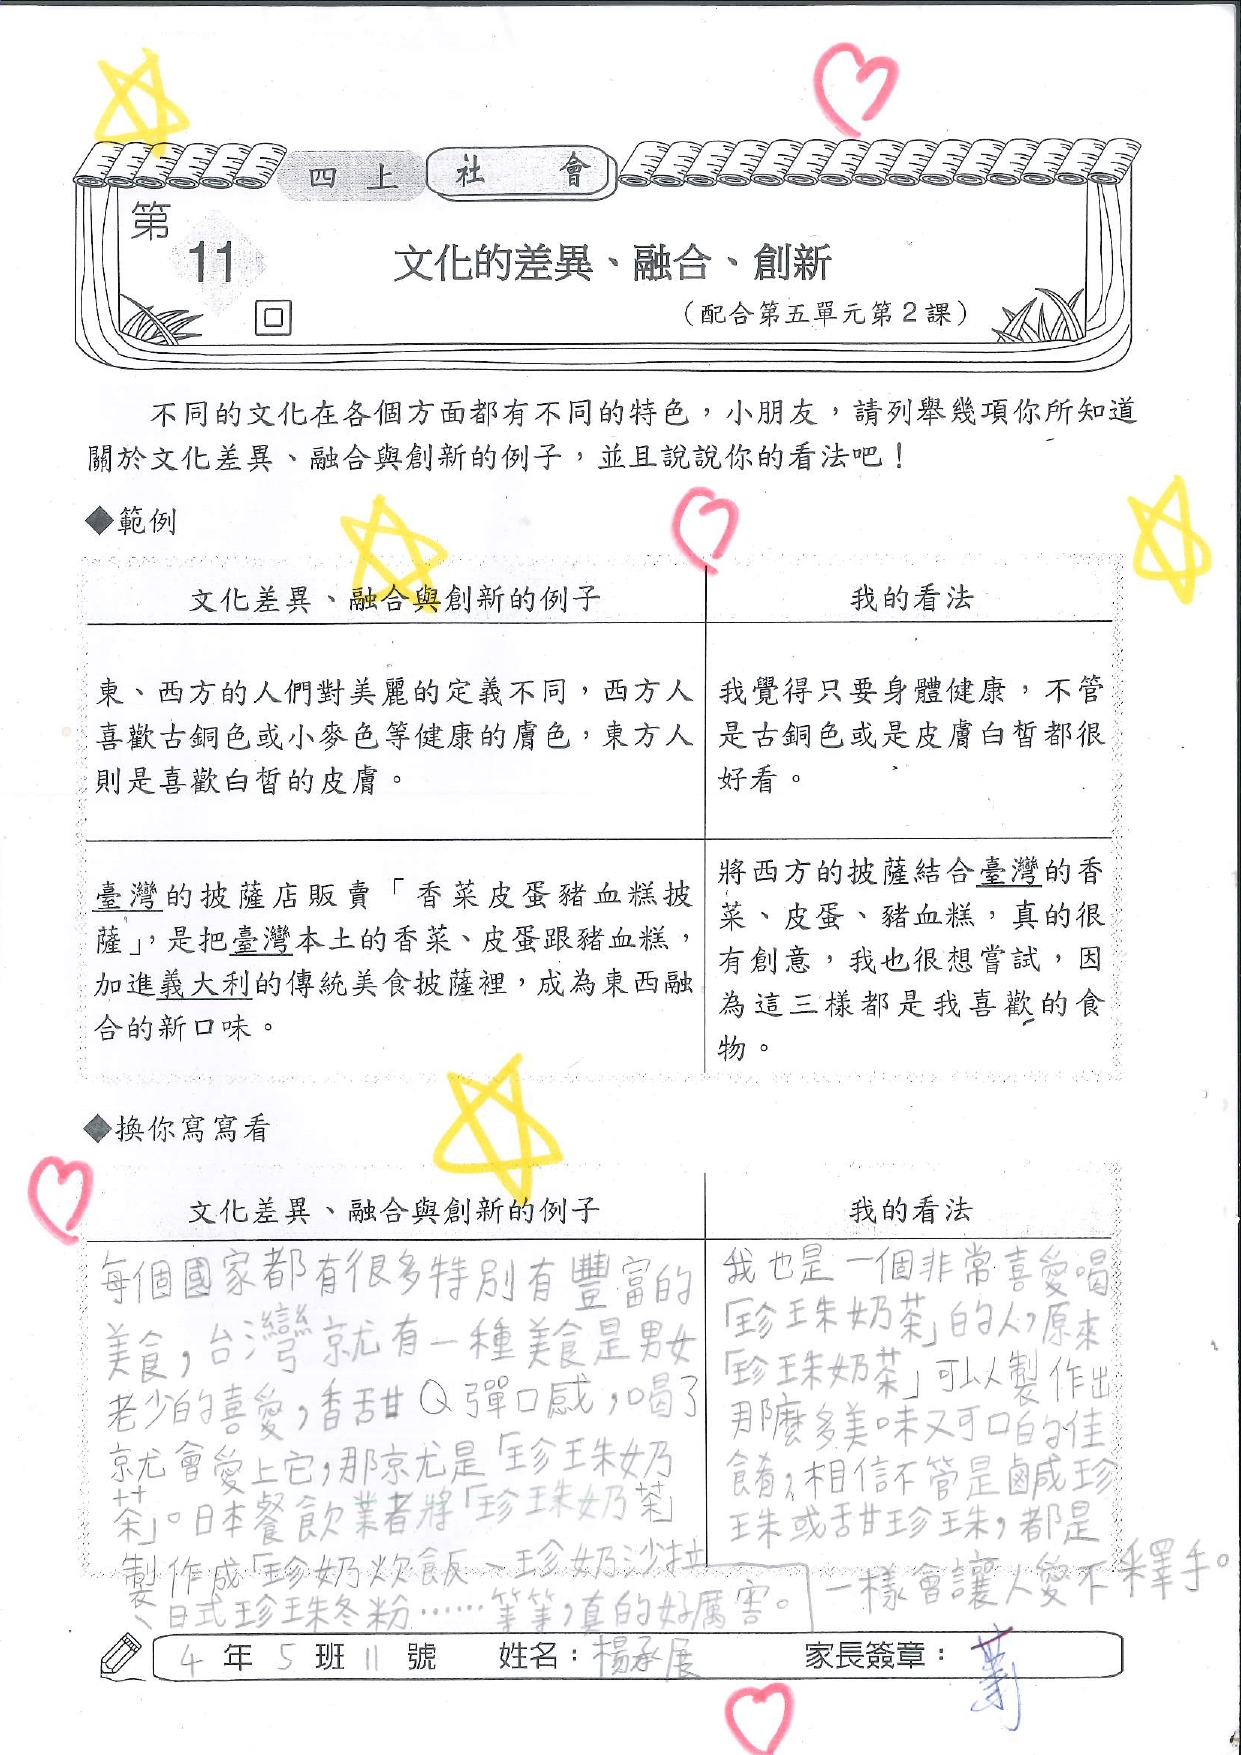 四上 社會
第
11
回
文化的差異、融合、創新
(配合第五單元第2課)
不同的文化在各個方面都有不同的特色，小朋友，請列舉幾項你所知道
關於文化差異、融合與創新的例子，並且說說你的看法吧！
◆範例
文化差異、融合與創新的例子
我的看法
東、西方的人們對美麗的定義不同，西方人
喜歡古銅色或小麥色等健康的膚色，東方人
則是喜歡白皙的皮膚。
我覺得只要身體健康，不管
是古銅色或是皮膚白皙都很
好看。
臺灣的披薩店販賣「香菜皮蛋豬血糕披
薩」，是把臺灣本土的香菜、皮蛋跟豬血糕，
加進義大利的傳統美食披薩裡，成為東西融
合的新口味。
將西方的披薩結合臺灣的香
菜、皮蛋、豬血糕，真的很
有創意，我也很想嘗試，因
為這三樣都是我喜歡的食
物。
◆換你寫寫看
文化差異、融合與創新的例子
我的看法
每個國家都有很多特別有豐富的
美食，台灣就有一種美食是男女
老少的喜愛，香甜Q彈口感，喝了
就會愛上它，那就是「珍珠奶
茶」。日本餐飲業者將「珍珠奶茶」
製作成「珍奶炊飯、珍奶沙拉
、日式珍珠冬粉……等等，真的好厲害。
我也是一個非常喜愛喝
「珍珠奶茶」的人，原來
「珍珠奶茶」可以製作出
那麼多美味又可口的佳
餚，相信不管是鹹珍
珠或甜珍珠，都是
一樣會讓人愛不釋手。
4年5班11號 姓名：楊承展 家長簽章：